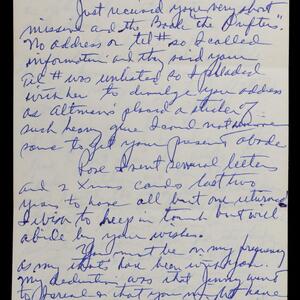 Just received your very short
missive and the Book "the Drifters".
No address or tel # so I called
information and they said your
Tel # was unlisted so I pleaded
with her to divulge you address
as Altman's placed a sticker of
such heavy glue I could not
some to get your present abode
Rose I sent several letters
and 2 Xmas cards last two
years to have all but one returned
I wish to keep in touch but will
abide by your wishes.
You must be on my frequency
as my thoughts have been with you
My deduction was that Jenny went
to or that you may have